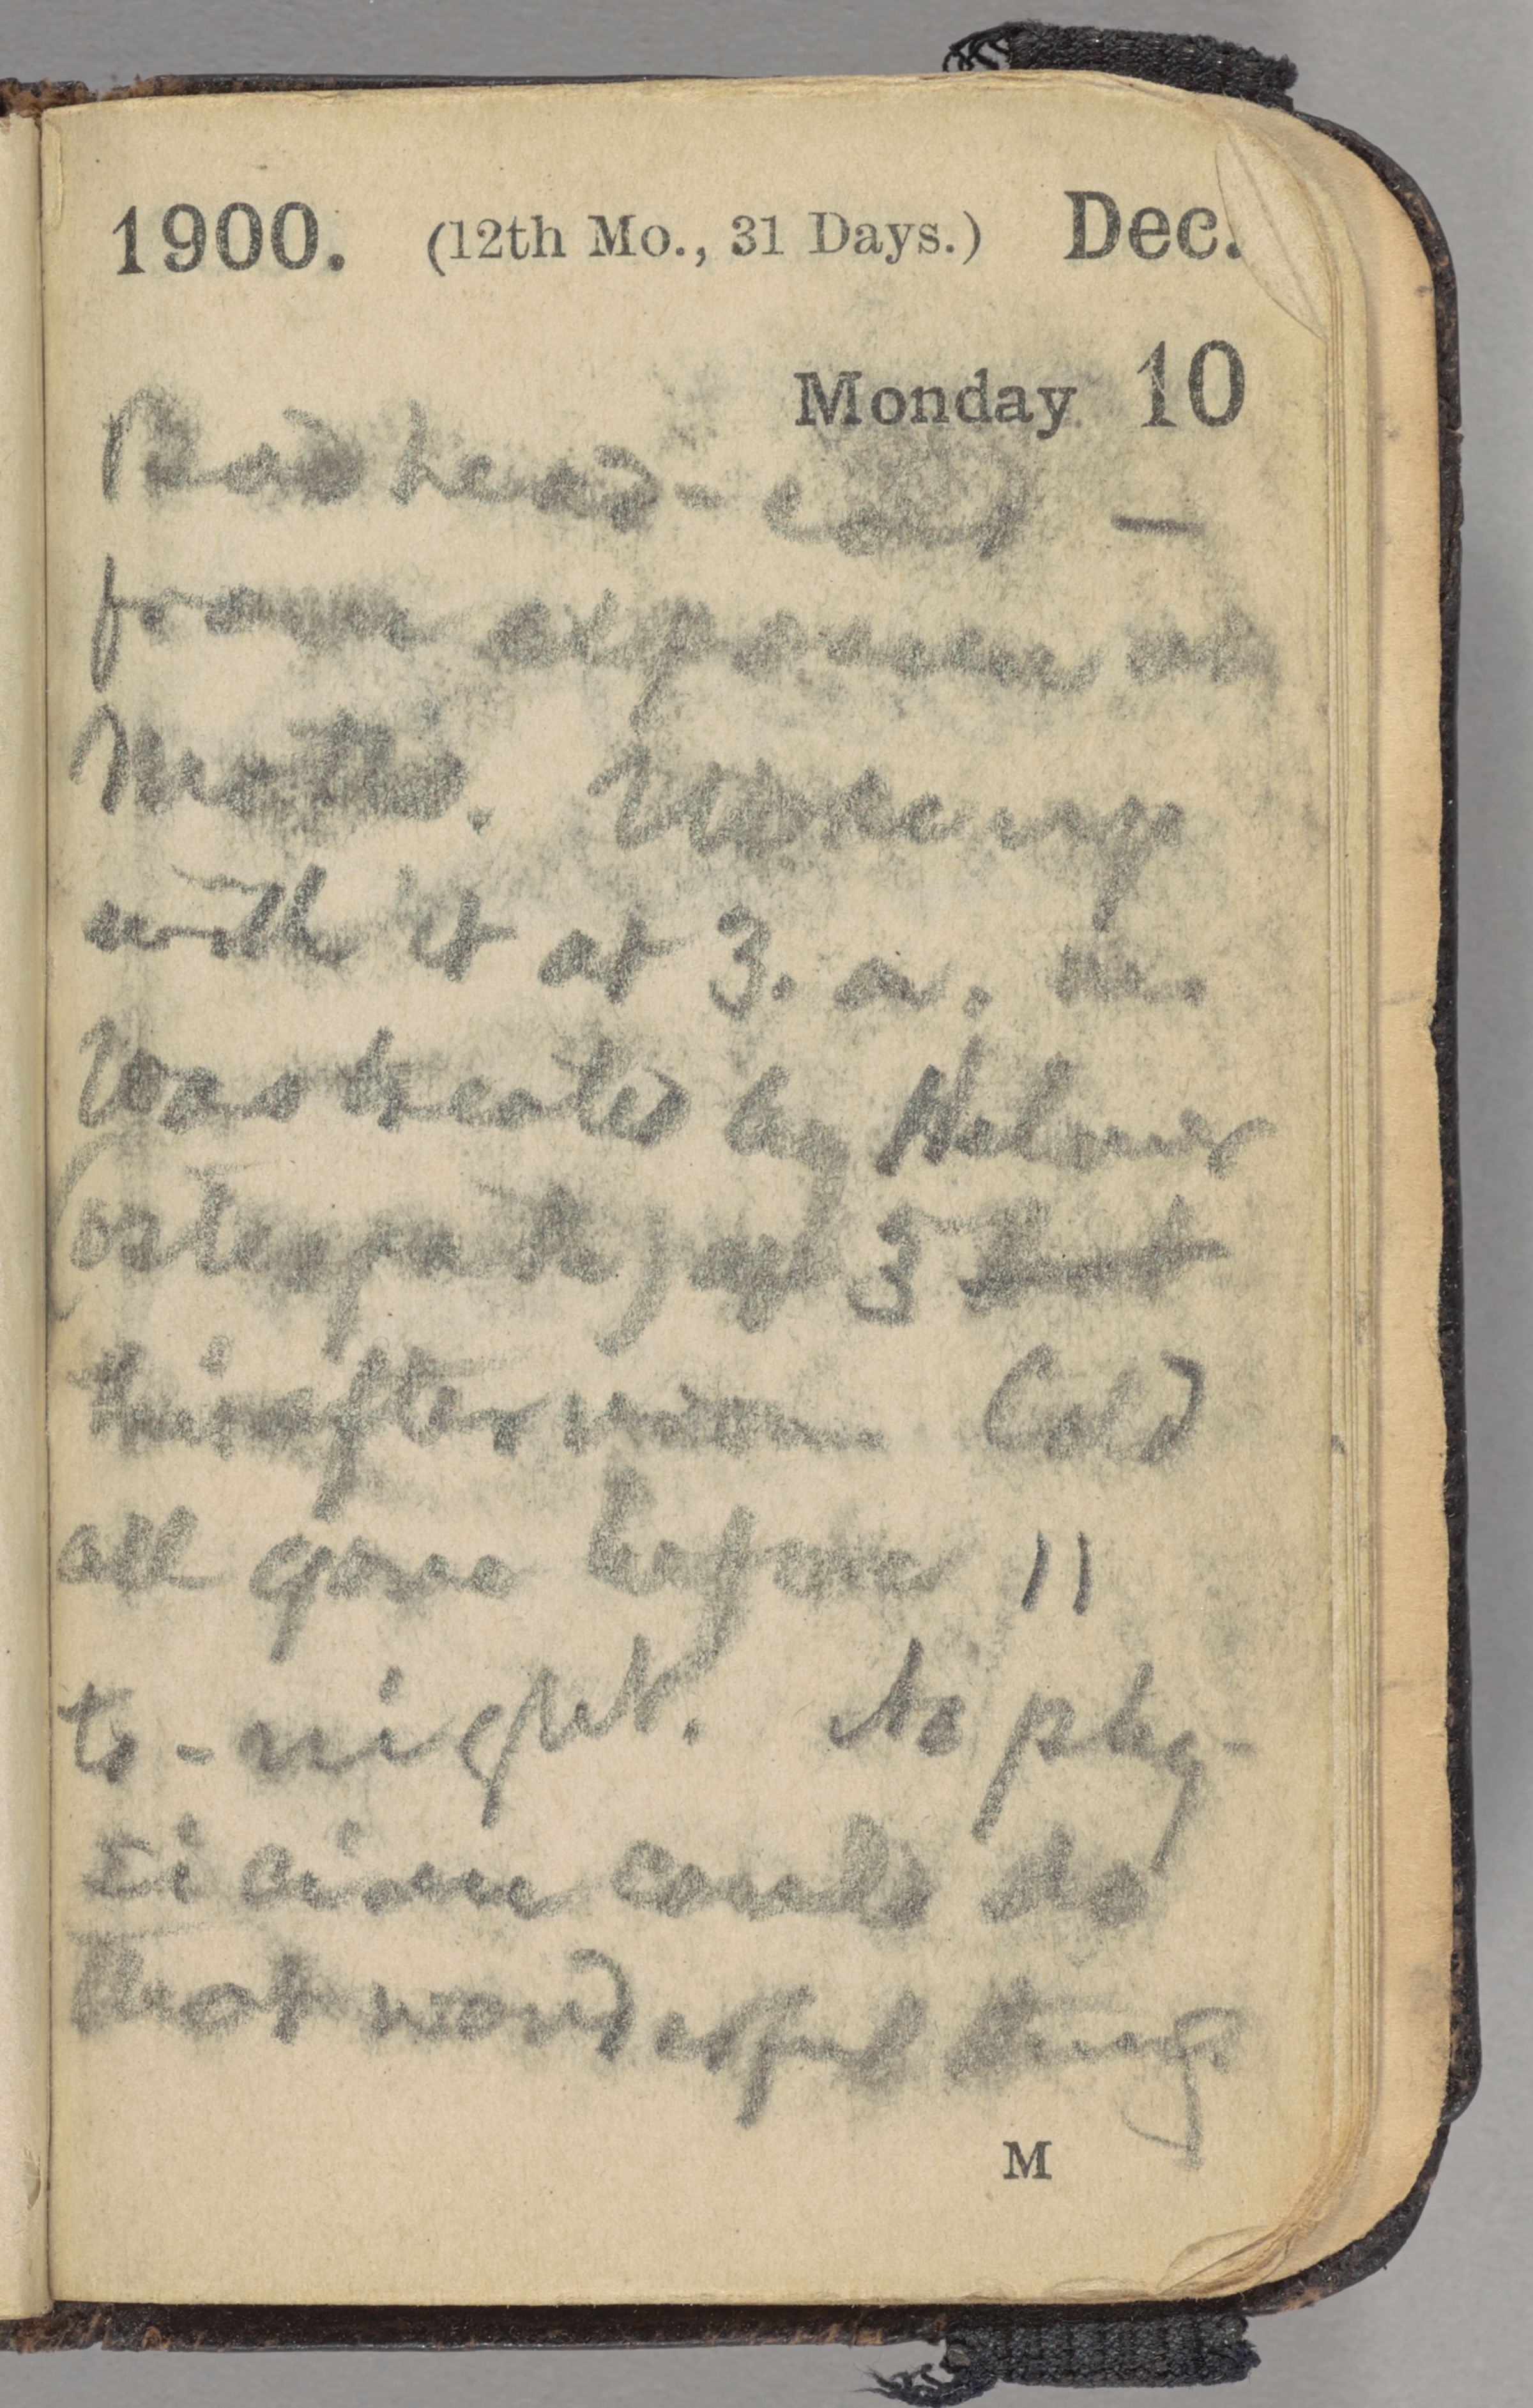 1900. (12th Mo., 31 Days.) Dec.
Monday 10
Bad head-cold —
from exposure at
Woke up
with it at 3. a. m.
Was treated by Helmer
(osteopath) at 5
this afternoon Cold
all gone before 11
to-night. No phy-
sician could do
that wonderful thing.
M